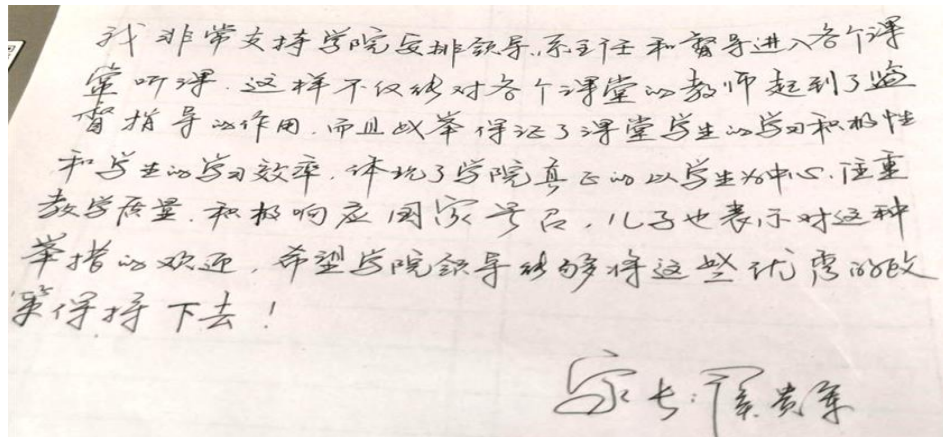 我非常支持学院安排领导、系主任和督导进入各个课
堂听课，这样不仅能对各个课堂的教师起到了监
督指导的作用，而且此举保证了课堂学生的学习积极性
和学生的学习效率，体现了学院真正的以学生为中心，注重
教学质量，积极响应国家号召，儿子也表示对这种
举措的欢迎，希望学院领导能够将这些优秀的政
策保持下去！
家长：